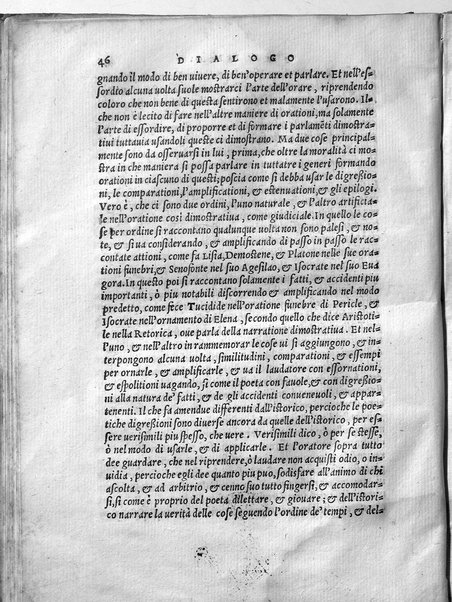 46 DIALOGO
gnando il modo di ben uiuere, di ben'operare et parlare. Et nell'es-
sordio alcuna uolta suole mostrarci l'arte dell'orare, riprendendo
coloro che non bene di questa sentirono et malamente l'usarono. Il-
che non è lecito di fare nell'altre maniere di orationi, ma solamente
l'arte di essordire, di proporre et di formare i parlamẽti dimostra-
tiui tuttauia usandoli questi ce dimostrano. Ma due cose principal-
mente sono da osseruarsi in lui, prima, che oltre la moralità ci mo
stra in che maniera si possa parlare in tuttatre i generi formando
orationi in ciascuno di questi; poscia come si debba usar le digreßio-
ni, le comparationi, l'amplificationi, & estenuationi, & gli epilogi.
Vero è, che ci sono due ordini, l'uno naturale, & l'altro artificia-
le nell'oratione cosi dimostratiua, come giudiciale. In quello le co-
se per ordine si raccontano qualunque uolta non sono palesi, & no-
te, & si ua considerando, & amplificando di passo in passo le rac-
contate attioni, come fa Lisia, Demostene, & Platone nelle sue ora
tioni funebri, & Senofonte nel suo Agesilao, & Isocrate nel suo Eua
gora. In questo poi si raccontano solamente i fatti, & accidenti piu
importanti, ò piu notabili discorrendo & amplificando nel modo
predetto, come fece Tucidide nell'oratione funebre di Pericle, &
Isocrate nell'ornamento di Elena, secondo quello che dice Aristoti-
le nella Retorica, oue parla della narratione dimostratiua. Et nel-
l'uno, & nell'altro in rammemorar le cose ui si aggiungono, & in-
terpongono alcuna uolta, similitudini, comparationi, & essempi
per ornarle, & amplificarle, & ua il laudatore con essornationi,
& espolitioni uagando, si come il poeta con fauole, & con digreßio
ni alla natura de' fatti, & de gli accidenti conueneuoli, & appar-
tenenti. Il che fa amendue differenti dall'istorico, percioche le poe-
tiche digreßioni sono diuerse ancora da quelle dell'istorico, per es-
sere uerisimili piu spesso, che uere. Verisimili dico, ò per se stesse,
ò nel modo di usarle, & di applicarle. Et l'oratore sopra tutto
dee guardare, che nel riprendere, ò laudare non acquisti odio, o in-
uidia, percioche egli dee quanto piu puo, sodisfare all'animo di chi
ascolta, & ad arbitrio, & cenno suo tutto fingersi, & accomodar-
si, si come è proprio del poeta dilettare, & giouare; & dell'istori-
co narrare la uerità delle cose seguendo l'ordine de' tempi, & del-